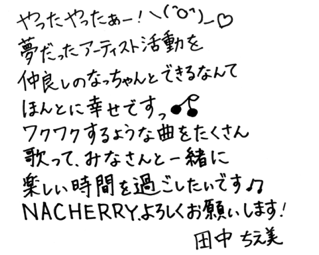 やったやったぁー！＼(^O^)_♡
夢だったアーティスト活動を
仲良しのなっちゃんとできるなんて
ほんとに幸せですっ🍒
ワクワクするような曲をたくさん
歌って、みなさんと一緒に
楽しい時間を過ごしたいです♫
NACHERRY、よろしくお願いします！
田中 ちえ美